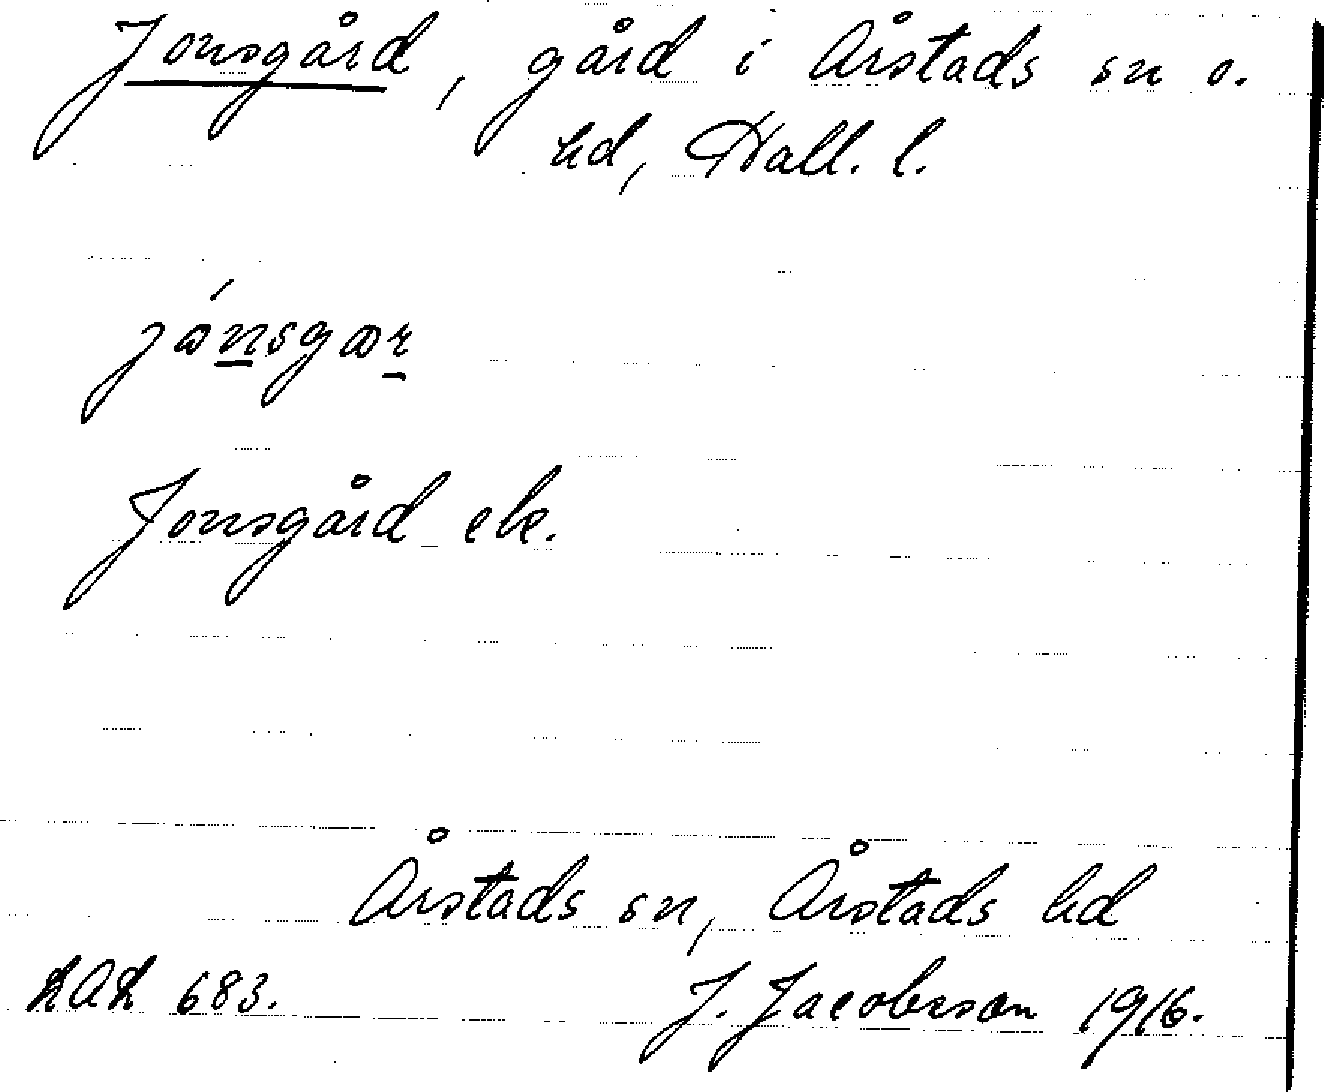 Jonsgård, gård i Årstads sn o.
hd, Hall. l.
Jonsgård ek.
Årstads sn, Årstads hd
683.
J. Jacobsson 1916.